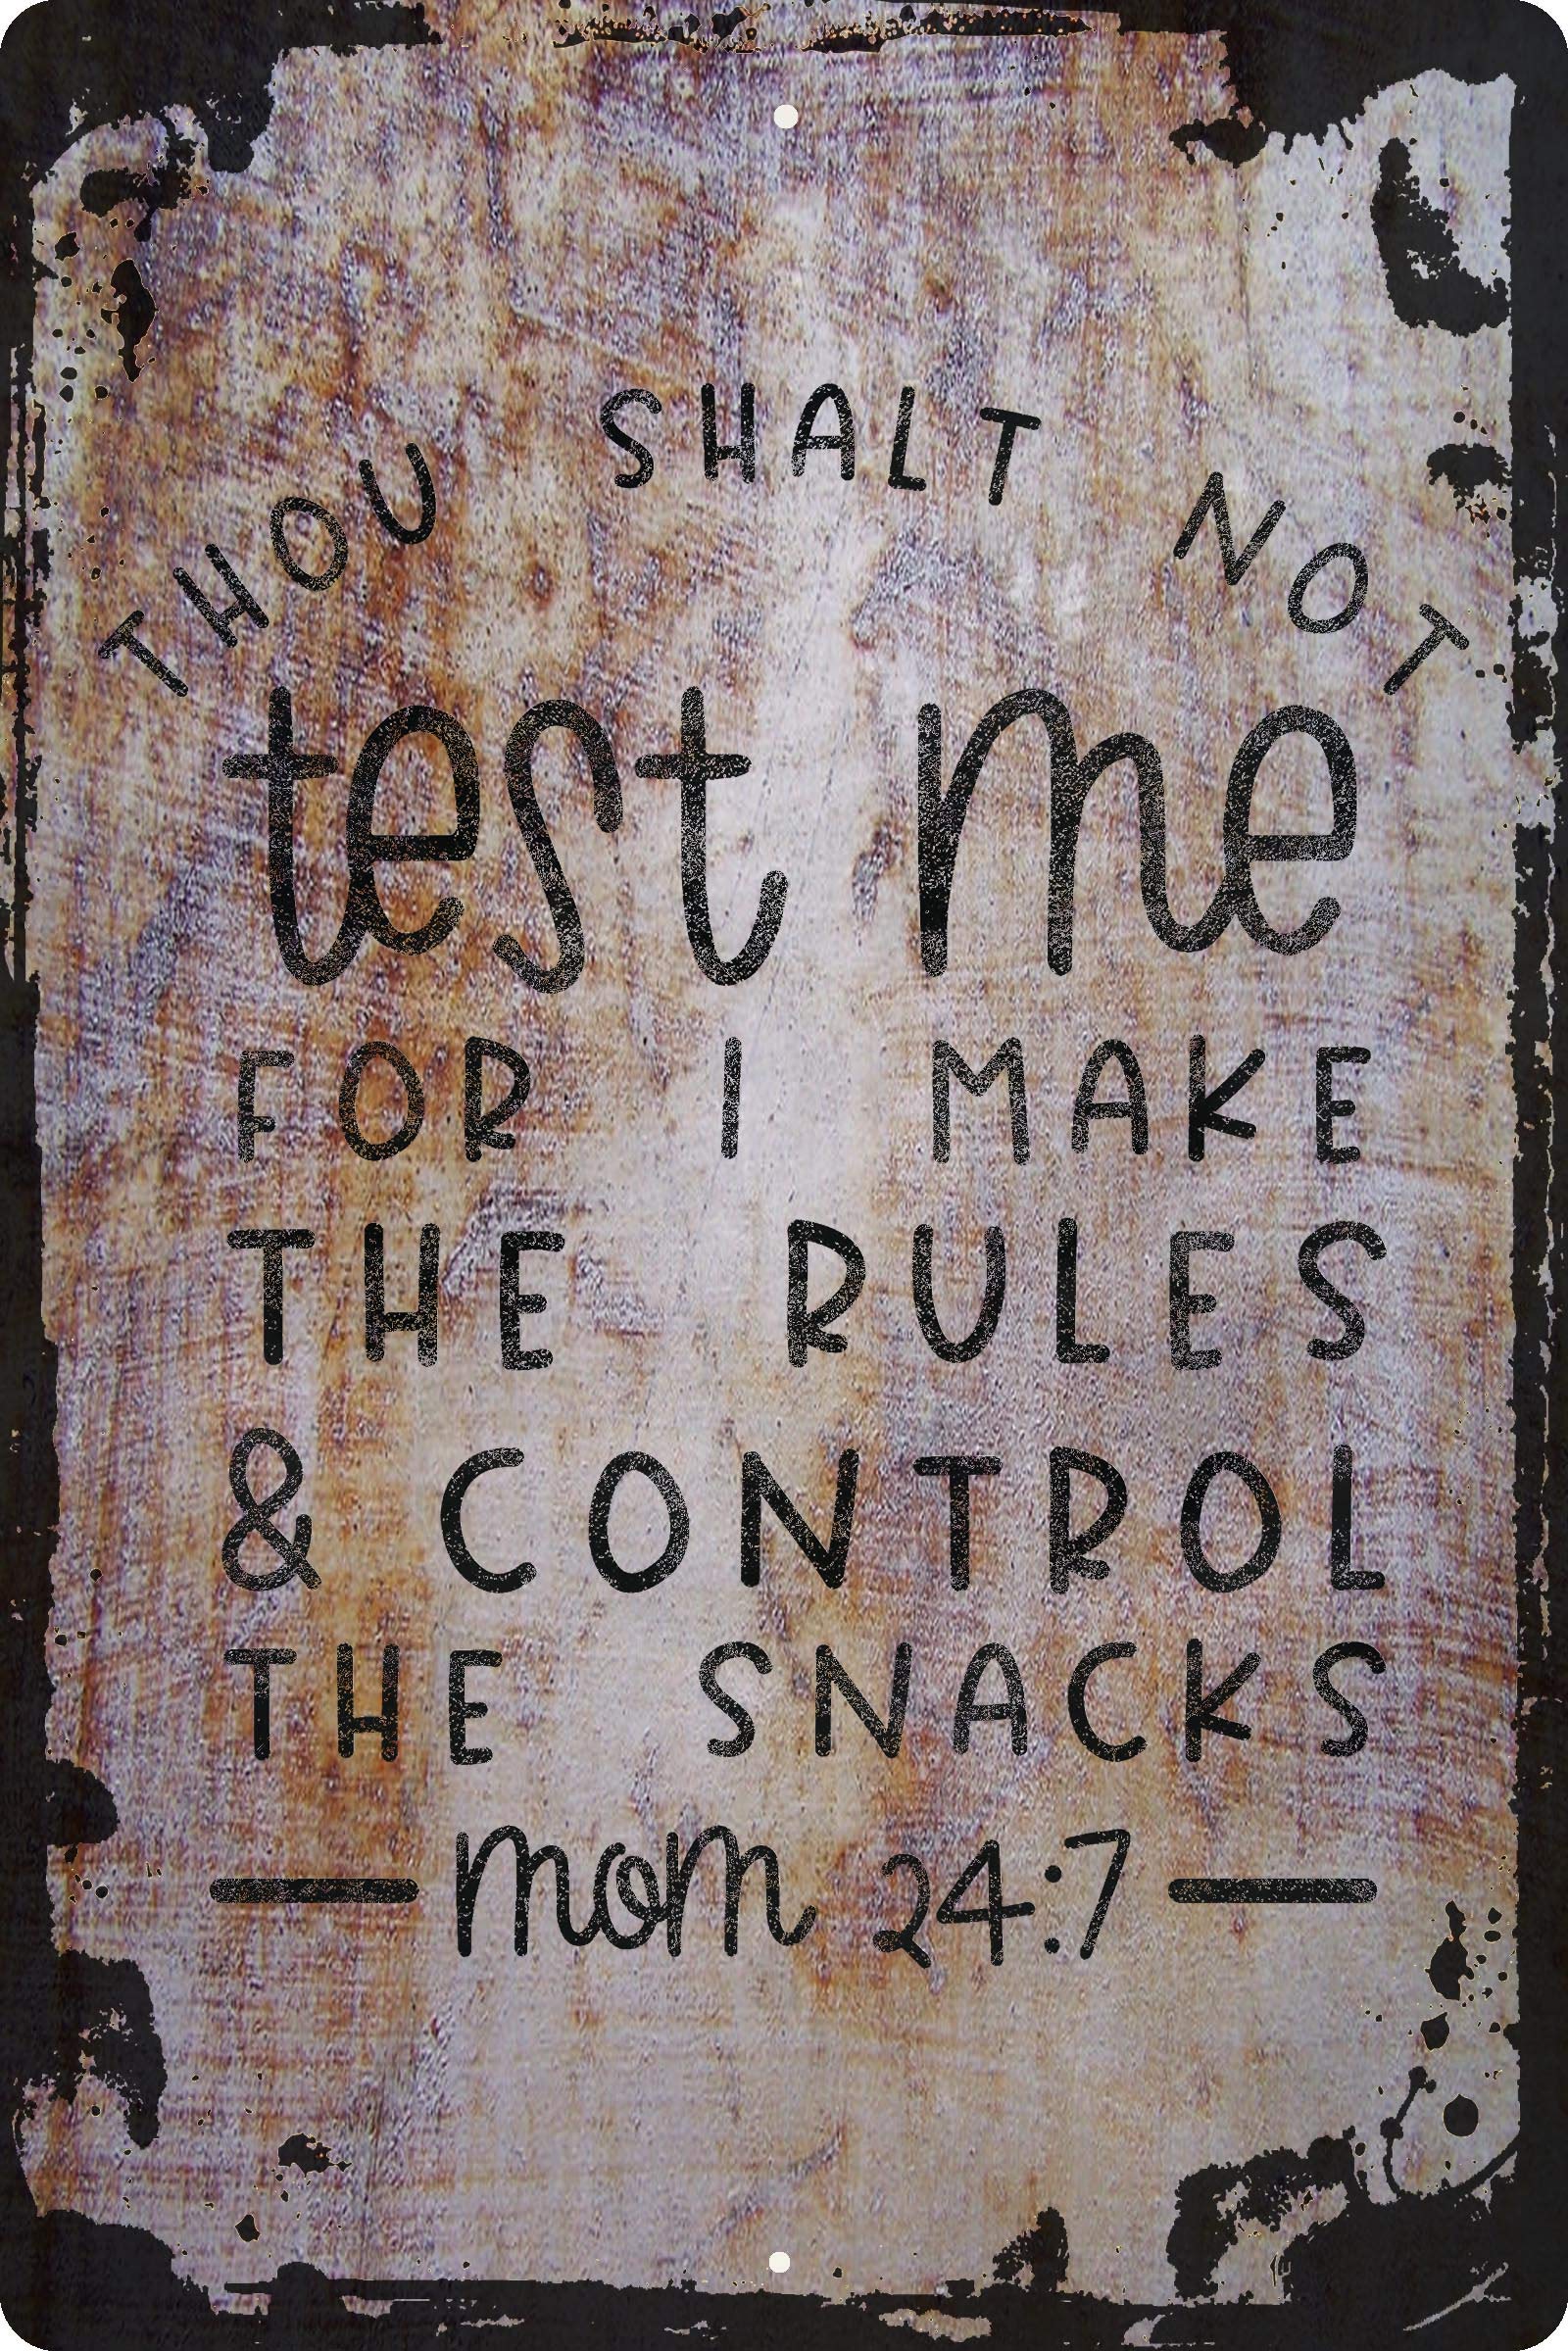 THOU SHALT NOT
test me
FOR I MAKE
THE RULES
& CONTROL
THE SNACKS
mom 24:7